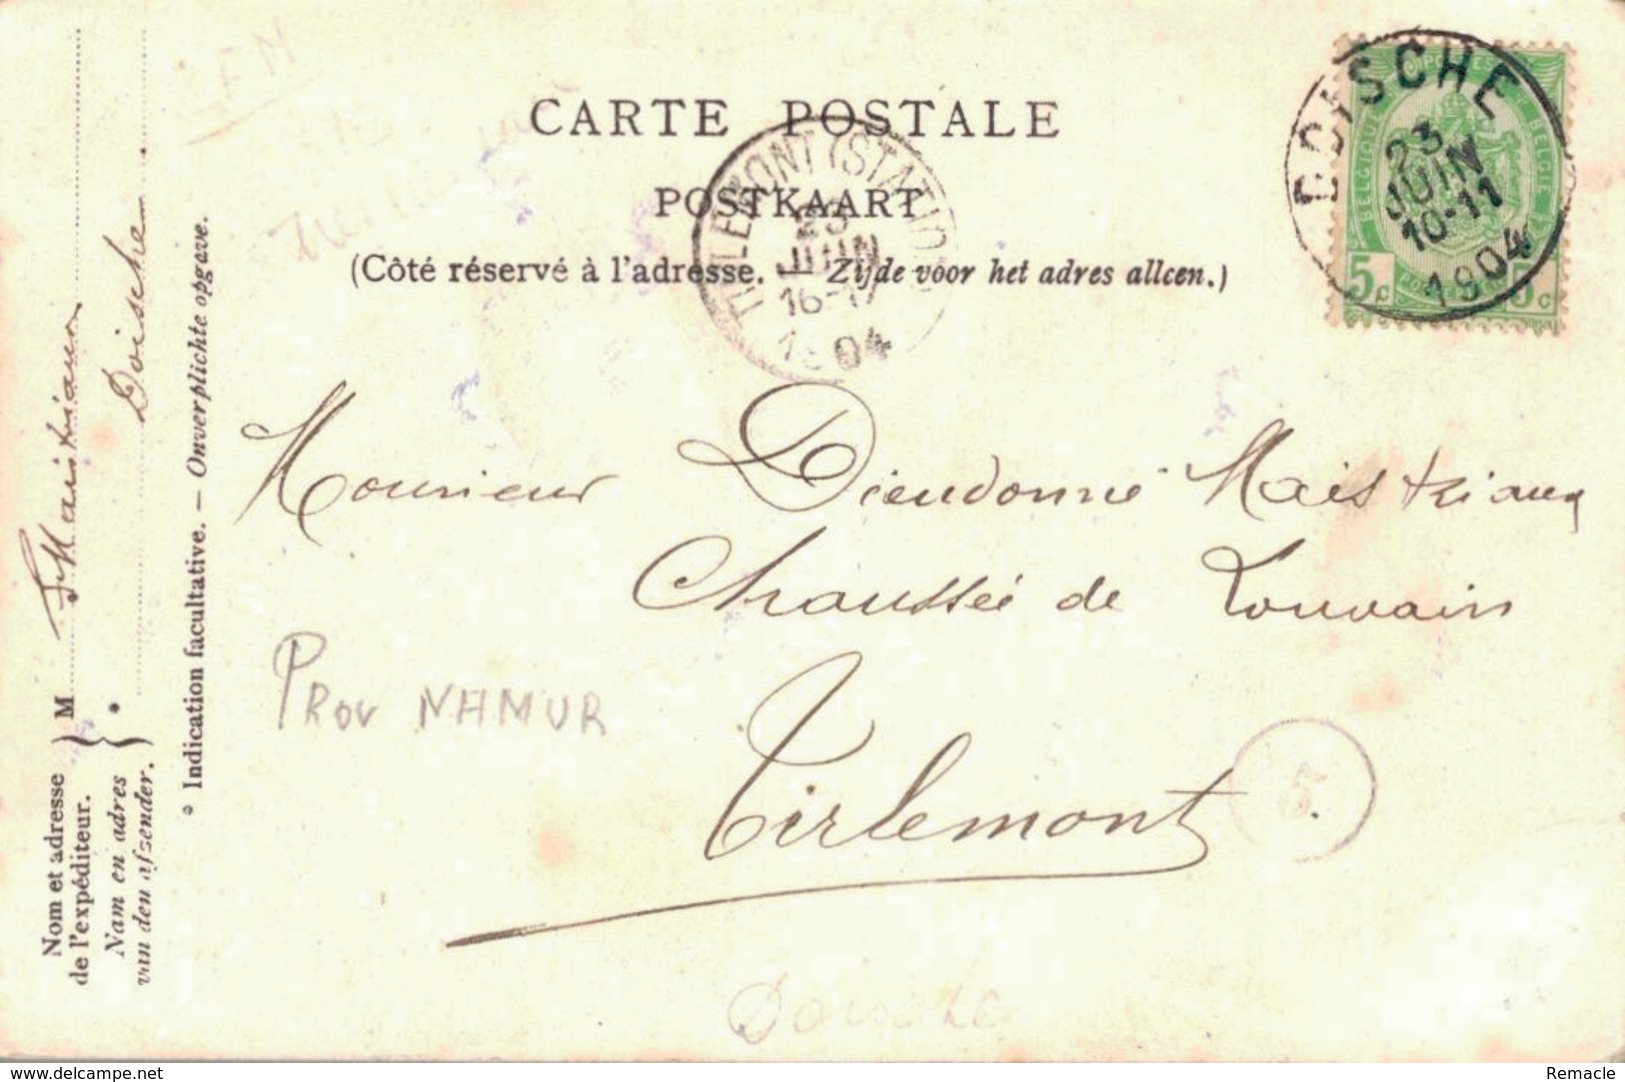 CARTE POSTALE
POSTKAART
(Côté réservé à l'adresse. — Zijde voor het adres alleen.)
DOISCHE
23
JUIN
10-11
1904
BELGIQUE
BELGIË
5 c
5 c
TIRLEMONT (STATION)
23
JUIN
16-17
1904
Monsieur Dieudonné Maistriaux
Chaussée de Louvain
Tirlemont
PROV NAMUR
5
Nom et adresse
de l'expéditeur.
Nam en adres
van den afzender.
M Maistriaux
* Doische
* Indication facultative. — Onverplichte opgave.
www.delcampe.net
Remacle